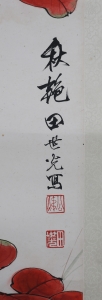 秋艳
田世光写